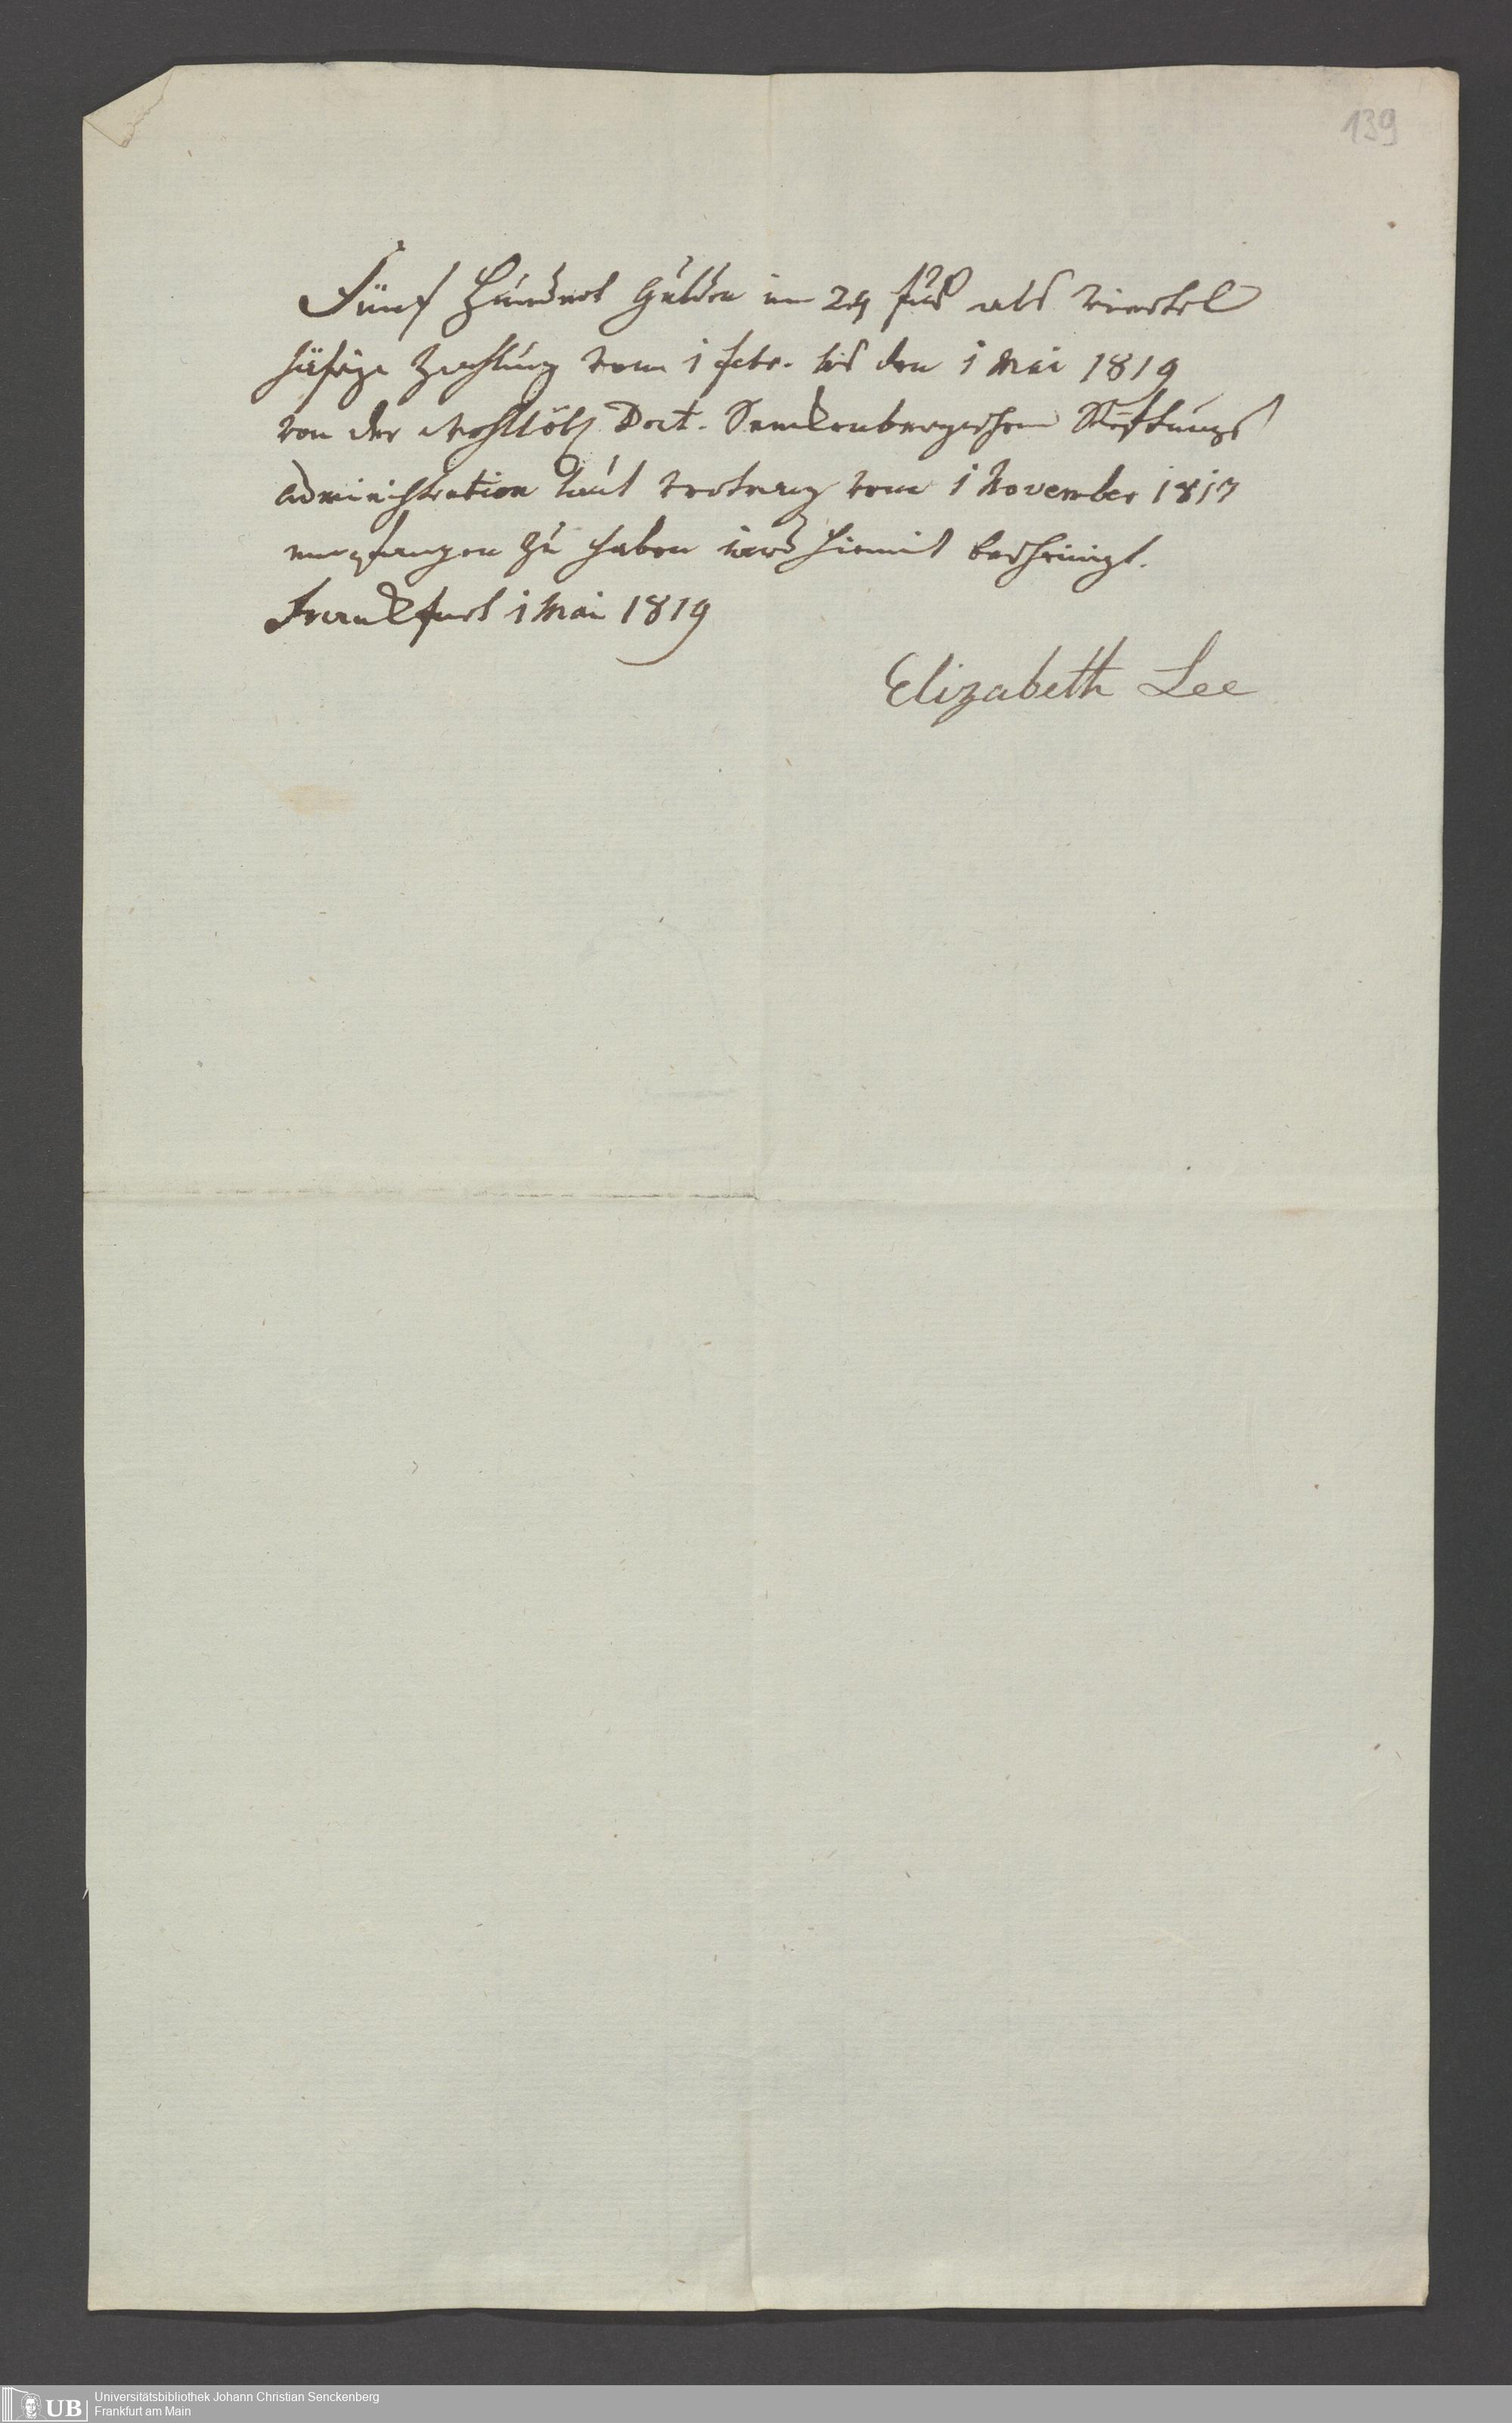 139
Fünf Hundert Gulden im 24 fus als viertel
jährige Zahlung vom 1 febr. bis den 1 Mai 1819
von der Wohllöbl Doct. Senckenbergischen Stiftungs
administration laut vertrag vom 1 November 1817
empfangen zu haben wird hiemit bescheinigt.
Frankfurt 1 Mai 1819
Elizabeth Lee
UB
Universitätsbibliothek Johann Christian Senckenberg
Frankfurt am Main